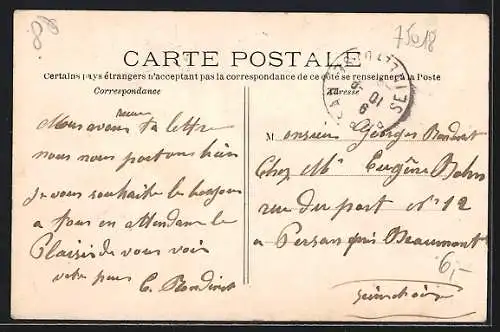 75018
CARTE POSTALE
Certains pays étrangers n'acceptant pas la correspondance de ce côté se renseigner à la Poste
Correspondance
Adresse
recu
Nous avons ta lettre
nous nous portons bien
je vous souhaite le bonjour
a tous en attendant le
Plaisir de vous voir
votre
Monsieur Georges Rondinet
Chez Mr Eugène
rue du port No 12
a Persan près Beaumont
Seine et Oise
6,-